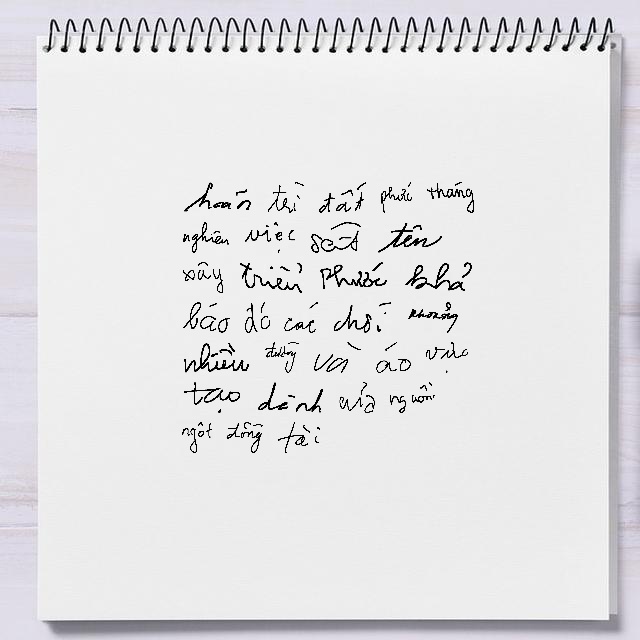 hoãn trì đất phức tháng
nghiên việc sất tên
xây triển phước khả
báo đó các chối khoảng
nhiều đường và áo vực
tạo dánh của nguồn
ngột đồng tài